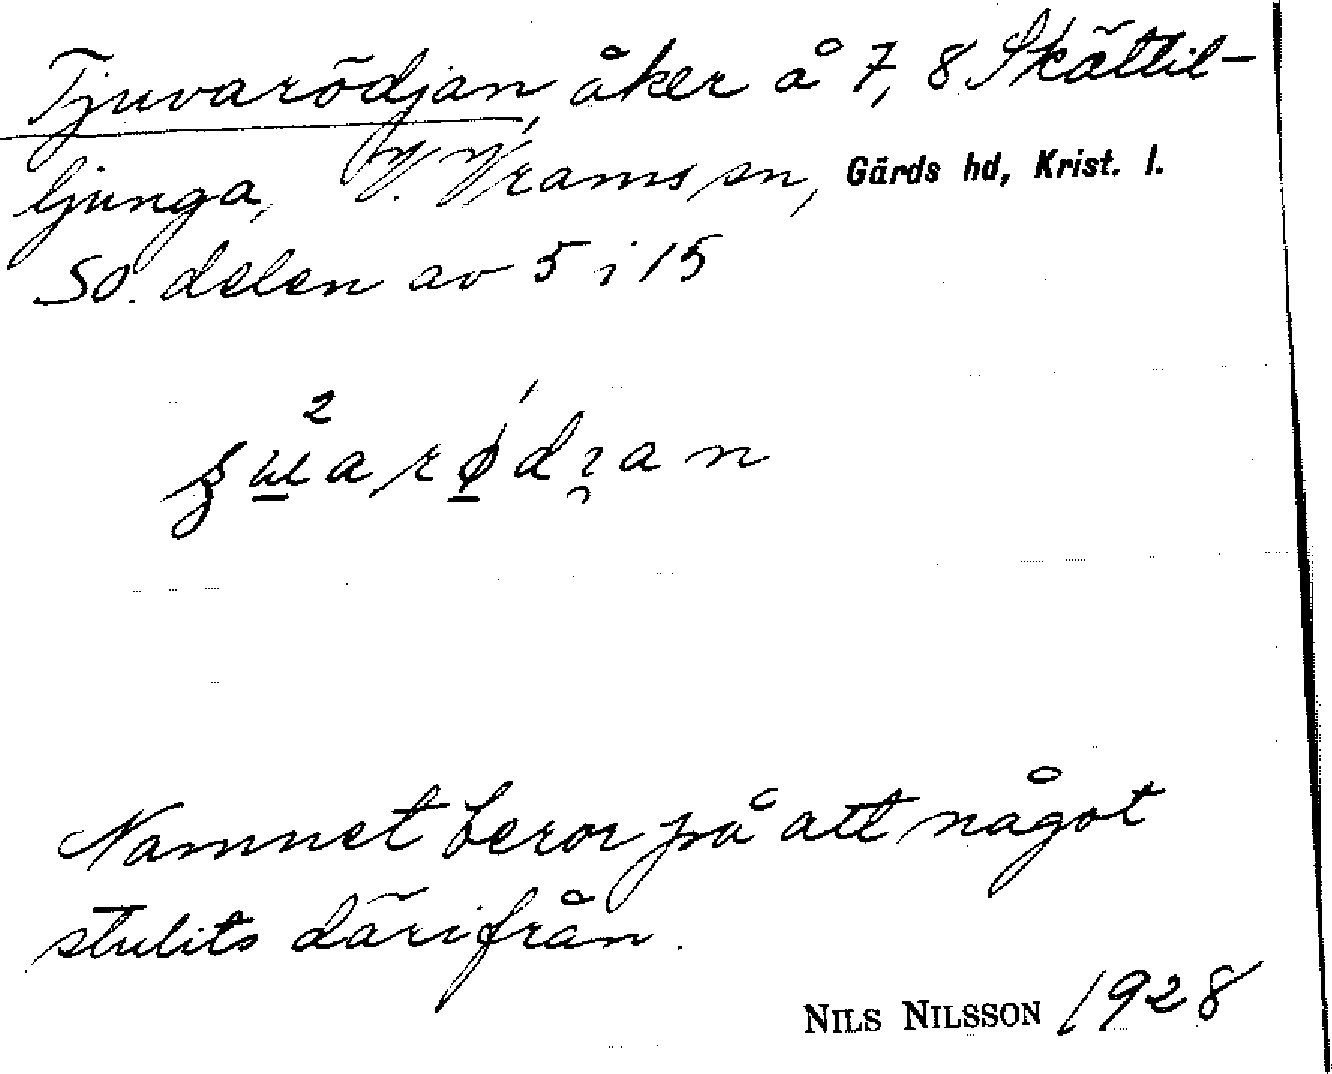 Tjuvarödjan, åker å 7, 8 Skättil-
ljunga, V. Vrams sn, Gärds hd, Krist. l.
SO. delen av 5 i 15
Namnet beror på att något
stulits därifrån.
NILS NILSSON 1928